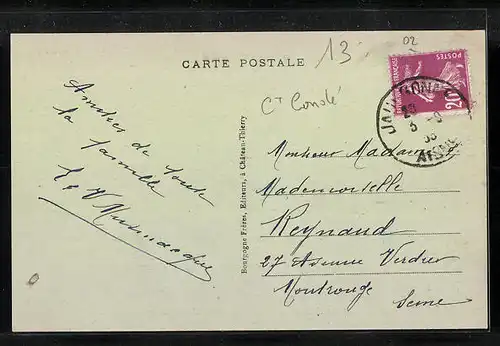 CARTE POSTALE
13
02
Ct Condé
POSTES
20
JAULGONNE
20
3 - 9
35
AISNE
Amitiés de toute
la famille
E et V
Bourgogne Frères, Editeurs, à Château-Thierry
Monsieur Madame
Mademoiselle
Reynaud
27 Avenue Verdier
Montrouge
Seine